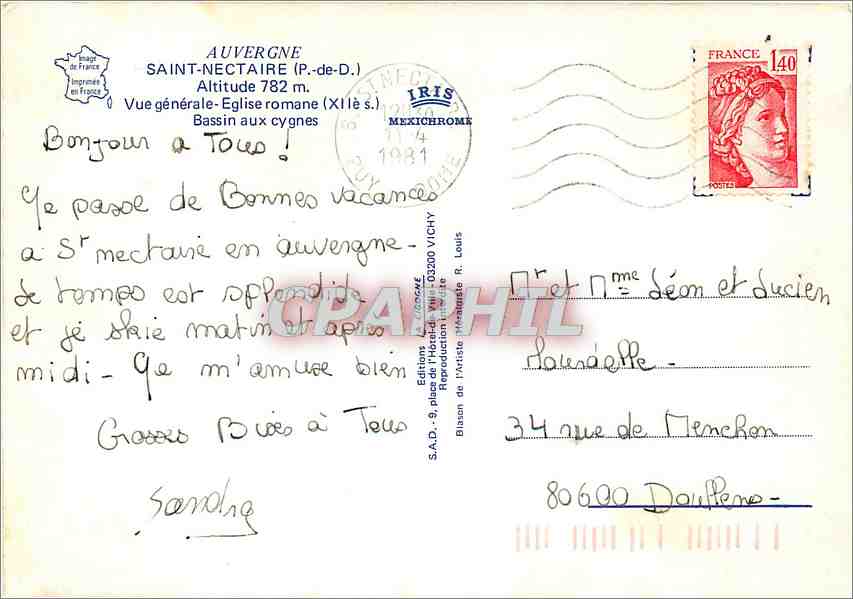 Image
de France
Imprimée
en France
AUVERGNE
SAINT-NECTAIRE (P.-de-D.)
Altitude 782 m.
Vue générale - Eglise romane (XIIè s.)
Bassin aux cygnes
IRIS
MEXICHROME
ST NECTAIRE
11-4
1981
PUY DOME
FRANCE
1,40
POSTES
Bonjour a Tous !
Je passe de Bonnes vacances
a St nectaire en auvergne -
Le temps est splendide
et je skie matin et apres
midi - Je m'amuse bien
Grosses Bises à Tous
Sandra
Editions LA CIGOGNE
S.A.D. - 9, place de l'Hôtel-de-Ville - 03200 VICHY
Reproduction interdite
Blason de l'Artiste Héraldiste R. Louis
Mr et Mme Léon et Lucien
34 rue de Menchon
80600 Doullens -
CPAPHIL